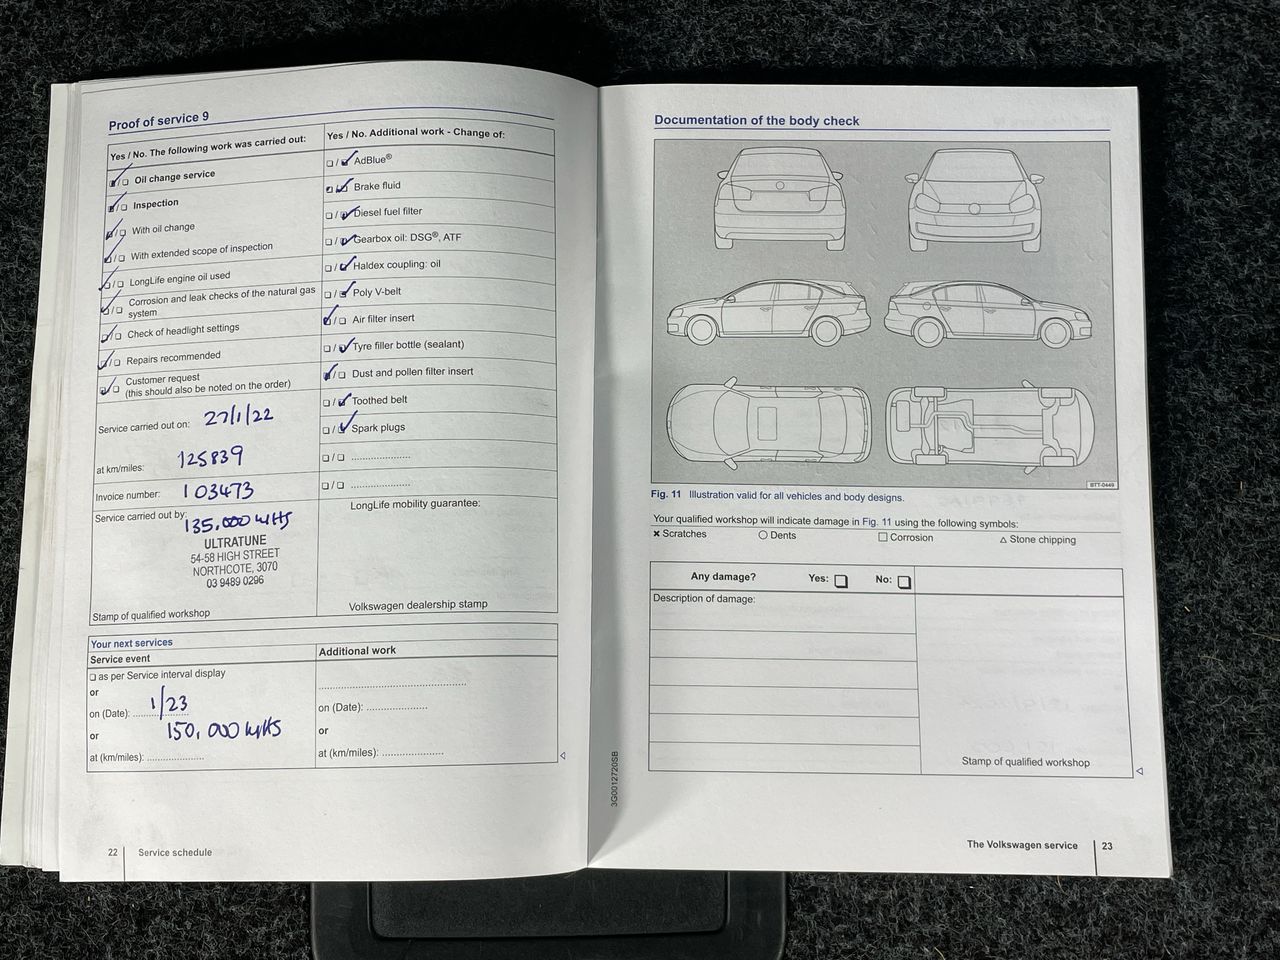 Proof of service 9
Yes / No. The following work was carried out:
Oil change service
Inspection
With oil change
With extended scope of inspection
LongLife engine oil used
Corrosion and leak checks of the natural gas
system
Check of headlight settings
Repairs recommended
Customer request
(this should also be noted on the order)
Service carried out on: 27/1/22
at km/miles: 125839
Invoice number: 103473
Service carried out by: 135,000 kms
ULTRATUNE
54-58 HIGH STREET
NORTHCOTE, 3070
03 9489 0296
Stamp of qualified workshop
Yes / No. Additional work - Change of:
AdBlue®
Brake fluid
Diesel fuel filter
Gearbox oil: DSG®, ATF
Haldex coupling: oil
Poly V-belt
Air filter insert
Tyre filler bottle (sealant)
Dust and pollen filter insert
Toothed belt
Spark plugs
LongLife mobility guarantee:
Volkswagen dealership stamp
Your next services
Service event
as per Service interval display
or
on (Date): 1/23
or 150,000 kms
at (km/miles): ....................
Additional work
on (Date): .....................
or
at (km/miles): .....................
22 Service schedule
Documentation of the body check
BTT-0449
Fig. 11 Illustration valid for all vehicles and body designs.
Your qualified workshop will indicate damage in Fig. 11 using the following symbols:
× Scratches ○ Dents □ Corrosion △ Stone chipping
Any damage? Yes: □ No: □
Description of damage:
Stamp of qualified workshop
3G0012720SB
The Volkswagen service 23